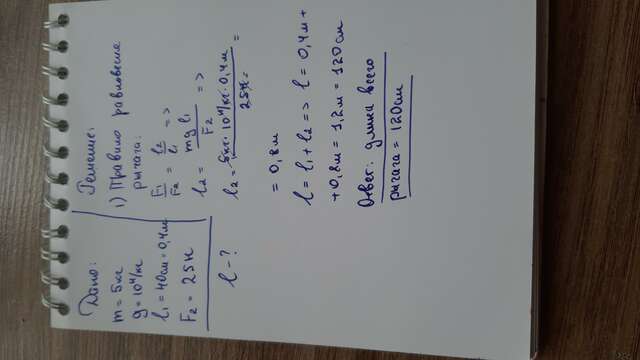 Дано:
m = 5кг
g = 10Н/кг
l₁ = 40см = 0,4м
F₂ = 25Н
l - ?
Решение:
1) Правило равновесия
рычага:
F₁/F₂ = l₂/l₁ =>
l₂ = mgl₁/F₂ =>
l₂ = 5кг · 10Н/кг · 0,4м / 25Н =
= 0,8м
l = l₁ + l₂ => l = 0,4м +
+ 0,8м = 1,2м = 120см
Ответ: длина всего
рычага = 120см